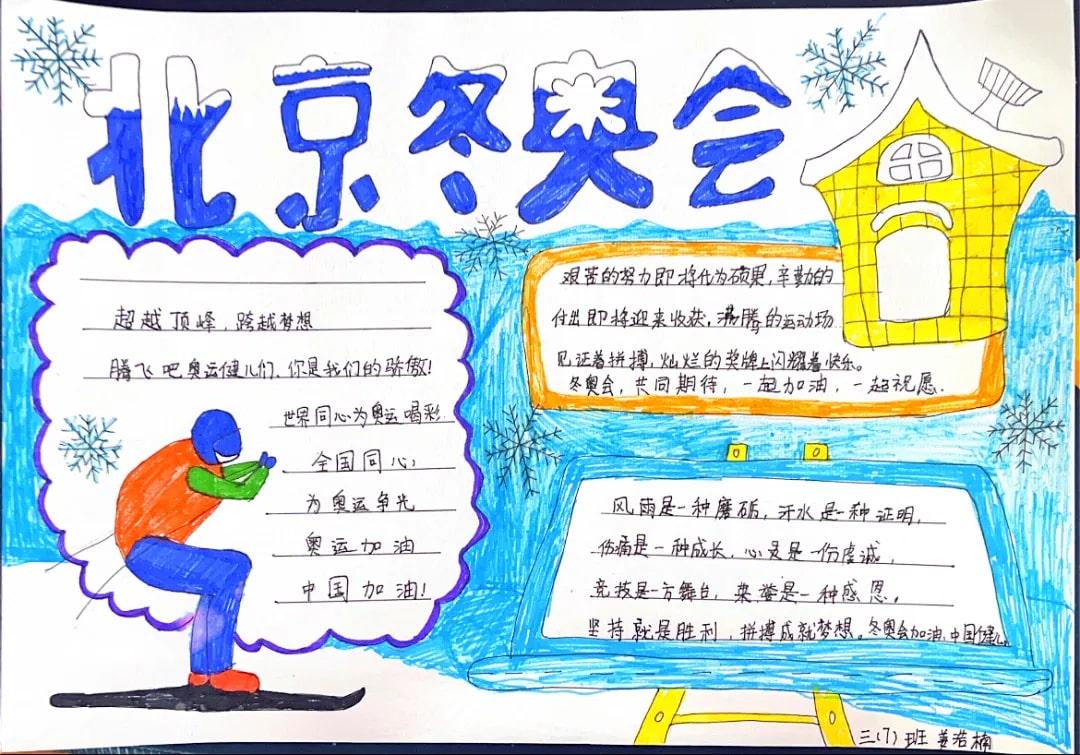 北京冬奥会
超越顶峰，跨越梦想
腾飞吧奥运健儿们、你是我们的骄傲!
世界同心为奥运喝彩
全国同心，
为奥运争光
奥运加油
中国加油!
艰苦的努力即将化为硕果，辛勤的
付出即将迎来收获，沸腾的运动场
见证着拼搏，灿烂的奖牌上闪耀着快乐。
冬奥会，共同期待，一起加油，一起祝愿.
风雨是一种磨砺，汗水是一种证明，
伤痛是一种成长，心灵是一份虔诚，
竞技是一方舞台，荣誉是一种感恩。
坚持就是胜利，拼搏成就梦想。冬奥会加油，中国健儿
三(7)班 姜若楠